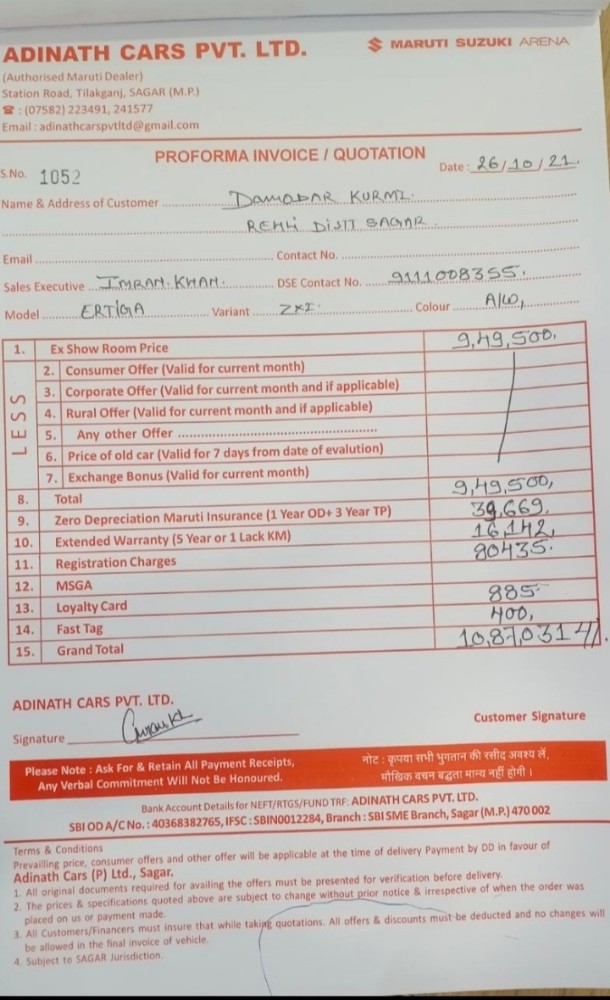 ADINATH CARS PVT. LTD.
MARUTI SUZUKI ARENA
(Authorised Maruti Dealer)
Station Road, Tilakganj, SAGAR (M.P.)
☎ : (07582) 223491, 241577
Email : adinathcarspvtltd@gmail.com
PROFORMA INVOICE / QUOTATION
S.No. 1052
Date : 26/10/21.
Name & Address of Customer DAMODAR KURMI.
REHLI DISTT SAGAR.
Email
Contact No.
Sales Executive IMRAN.KHAN. DSE Contact No. 9111008355.
Model ERTIGA Variant ZXI. Colour A/W,
1. Ex Show Room Price 9,49,500.
LESS
2. Consumer Offer (Valid for current month)
3. Corporate Offer (Valid for current month and if applicable)
4. Rural Offer (Valid for current month and if applicable)
5. Any other Offer
6. Price of old car (Valid for 7 days from date of evalution)
7. Exchange Bonus (Valid for current month)
8. Total 9,49,500,
9. Zero Depreciation Maruti Insurance (1 Year OD+ 3 Year TP) 39,669.
10. Extended Warranty (5 Year or 1 Lack KM) 16,142,
11. Registration Charges 80435.
12. MSGA
13. Loyalty Card 885-
14. Fast Tag 400,
15. Grand Total 10,87,031/-
ADINATH CARS PVT. LTD.
Signature
Customer Signature
Please Note : Ask For & Retain All Payment Receipts,
Any Verbal Commitment Will Not Be Honoured.
नोट : कृपया सभी भुगतान की रसीद अवश्य लें,
मौखिक वचन बद्धता मान्य नहीं होगी ।
Bank Account Details for NEFT/RTGS/FUND TRF: ADINATH CARS PVT. LTD.
SBI OD A/C No. : 40368382765, IFSC : SBIN0012284, Branch : SBI SME Branch, Sagar (M.P.) 470 002
Terms & Conditions
Prevailling price, consumer offers and other offer will be applicable at the time of delivery Payment by DD in favour of
Adinath Cars (P) Ltd., Sagar.
1. All original documents required for availing the offers must be presented for verification before delivery.
2. The prices & specifications quoted above are subject to change without prior notice & irrespective of when the order was
placed on us or payment made.
3. All Customers/Financers must insure that while taking quotations. All offers & discounts must be deducted and no changes will
be allowed in the final invoice of vehicle.
4. Subject to SAGAR Jurisdiction.